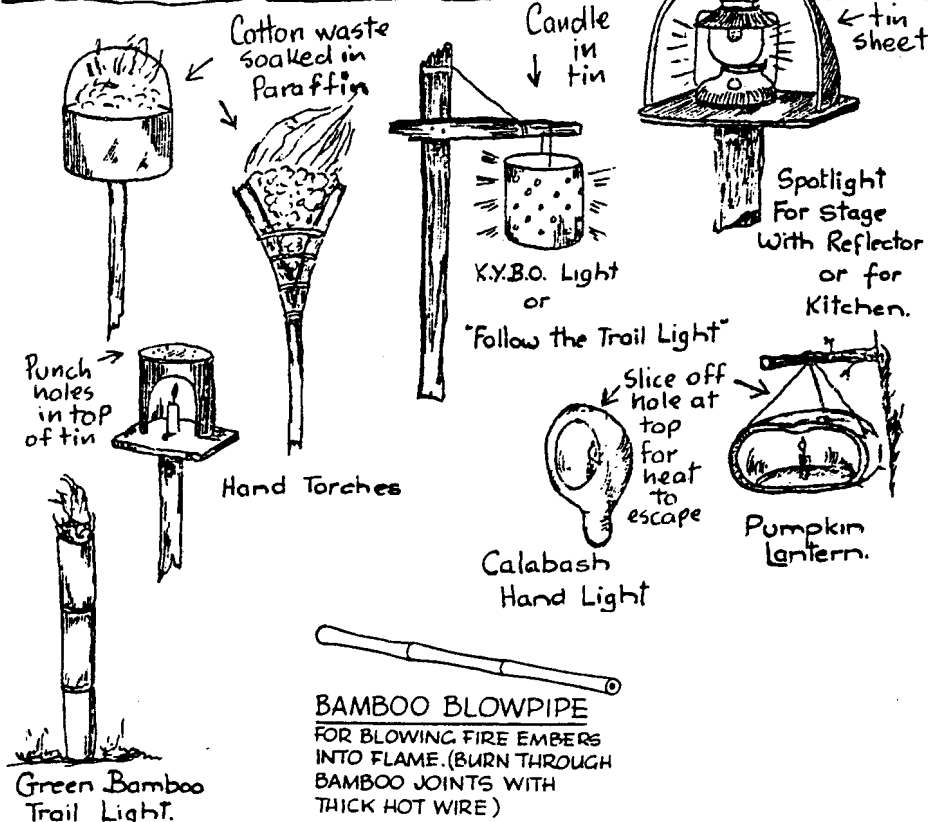 Cotton waste
soaked in
Paraffin
Candle
in
tin
tin
sheet
Spotlight
For Stage
With Reflector
or for
Kitchen.
K.Y.B.O. Light
or
"Follow the Trail Light"
Punch
holes
in top
of tin
Hand Torches
Slice off
hole at
top
for
heat
to
escape
Calabash
Hand Light
Pumpkin
Lantern.
Green Bamboo
Trail Light.
BAMBOO BLOWPIPE
FOR BLOWING FIRE EMBERS
INTO FLAME. (BURN THROUGH
BAMBOO JOINTS WITH
THICK HOT WIRE)